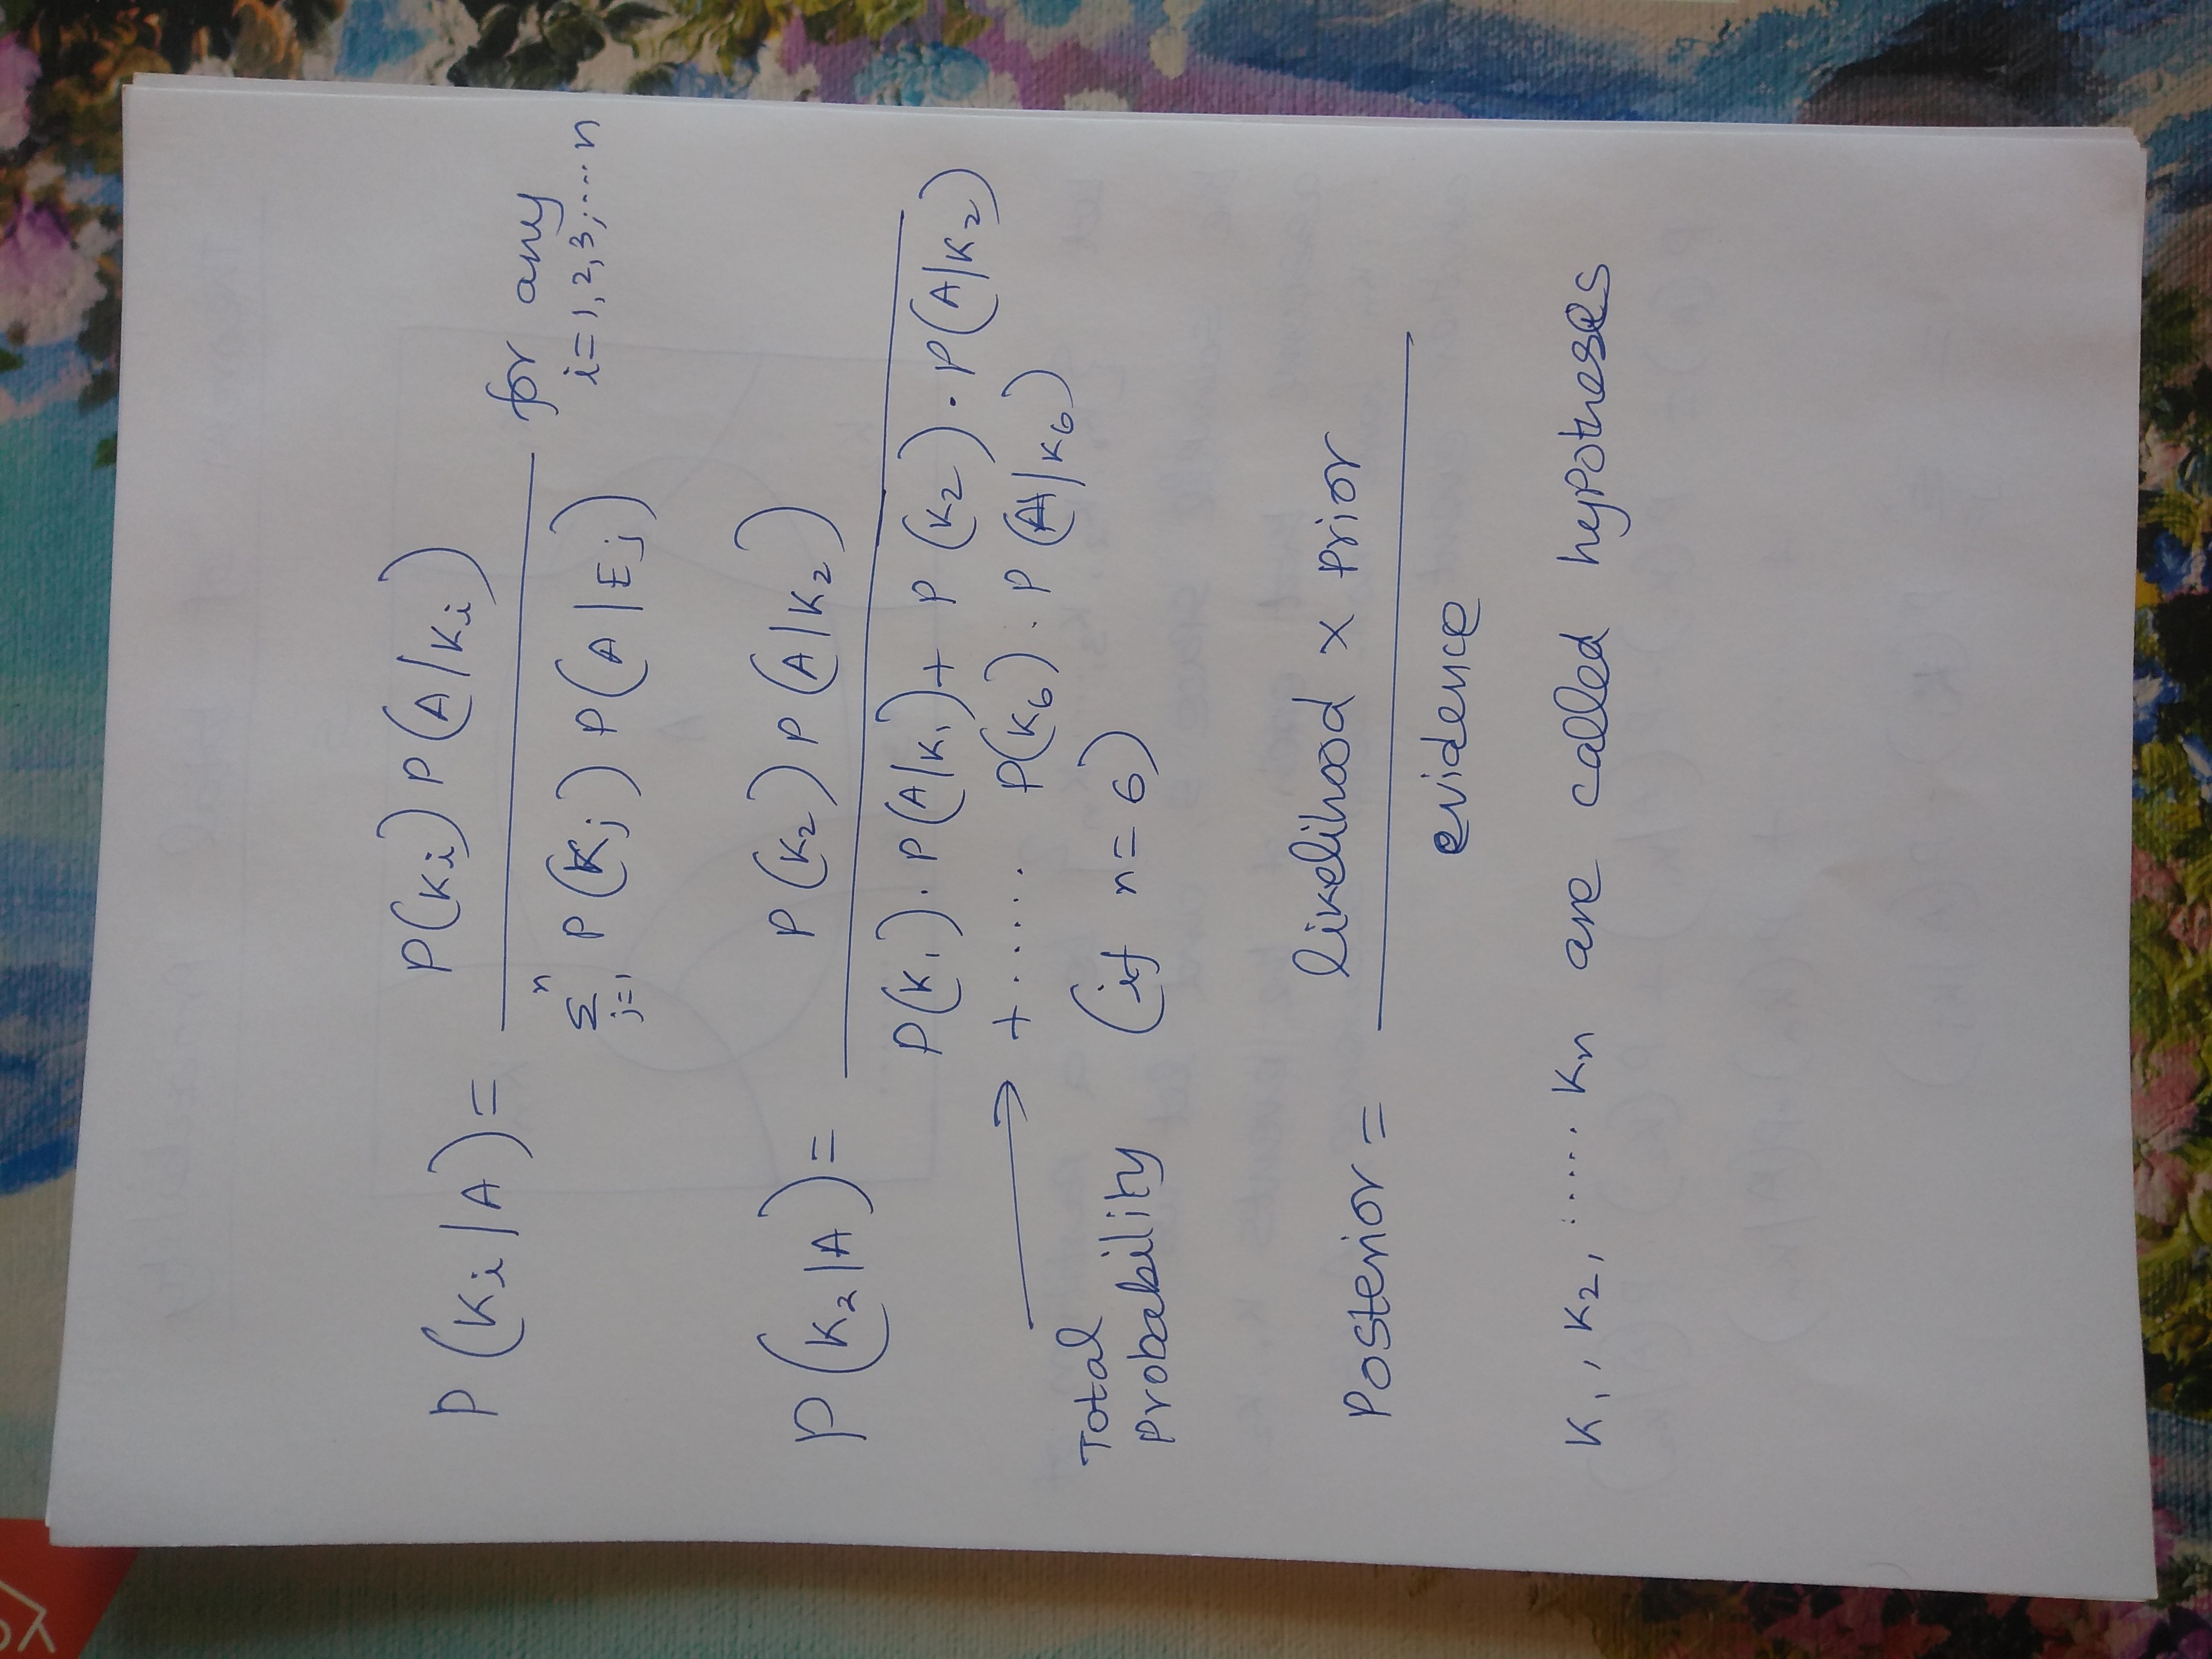 P(Ki/A) = P(Ki) P(A/Ki) / Σ_{j=1}^{n} P(Kj) P(A|Ej) for any
i=1,2,3,....n
P(K2|A) = P(K2) P(A|K2) / P(K1). P(A/K1)+ P(K2). P(A/K2)
+...... P(K6). P(A/K6)
Total
Probability (if n=6)
Posterior = likelihood x Prior / evidence
K1, K2, ..... Kn are called hypotheses